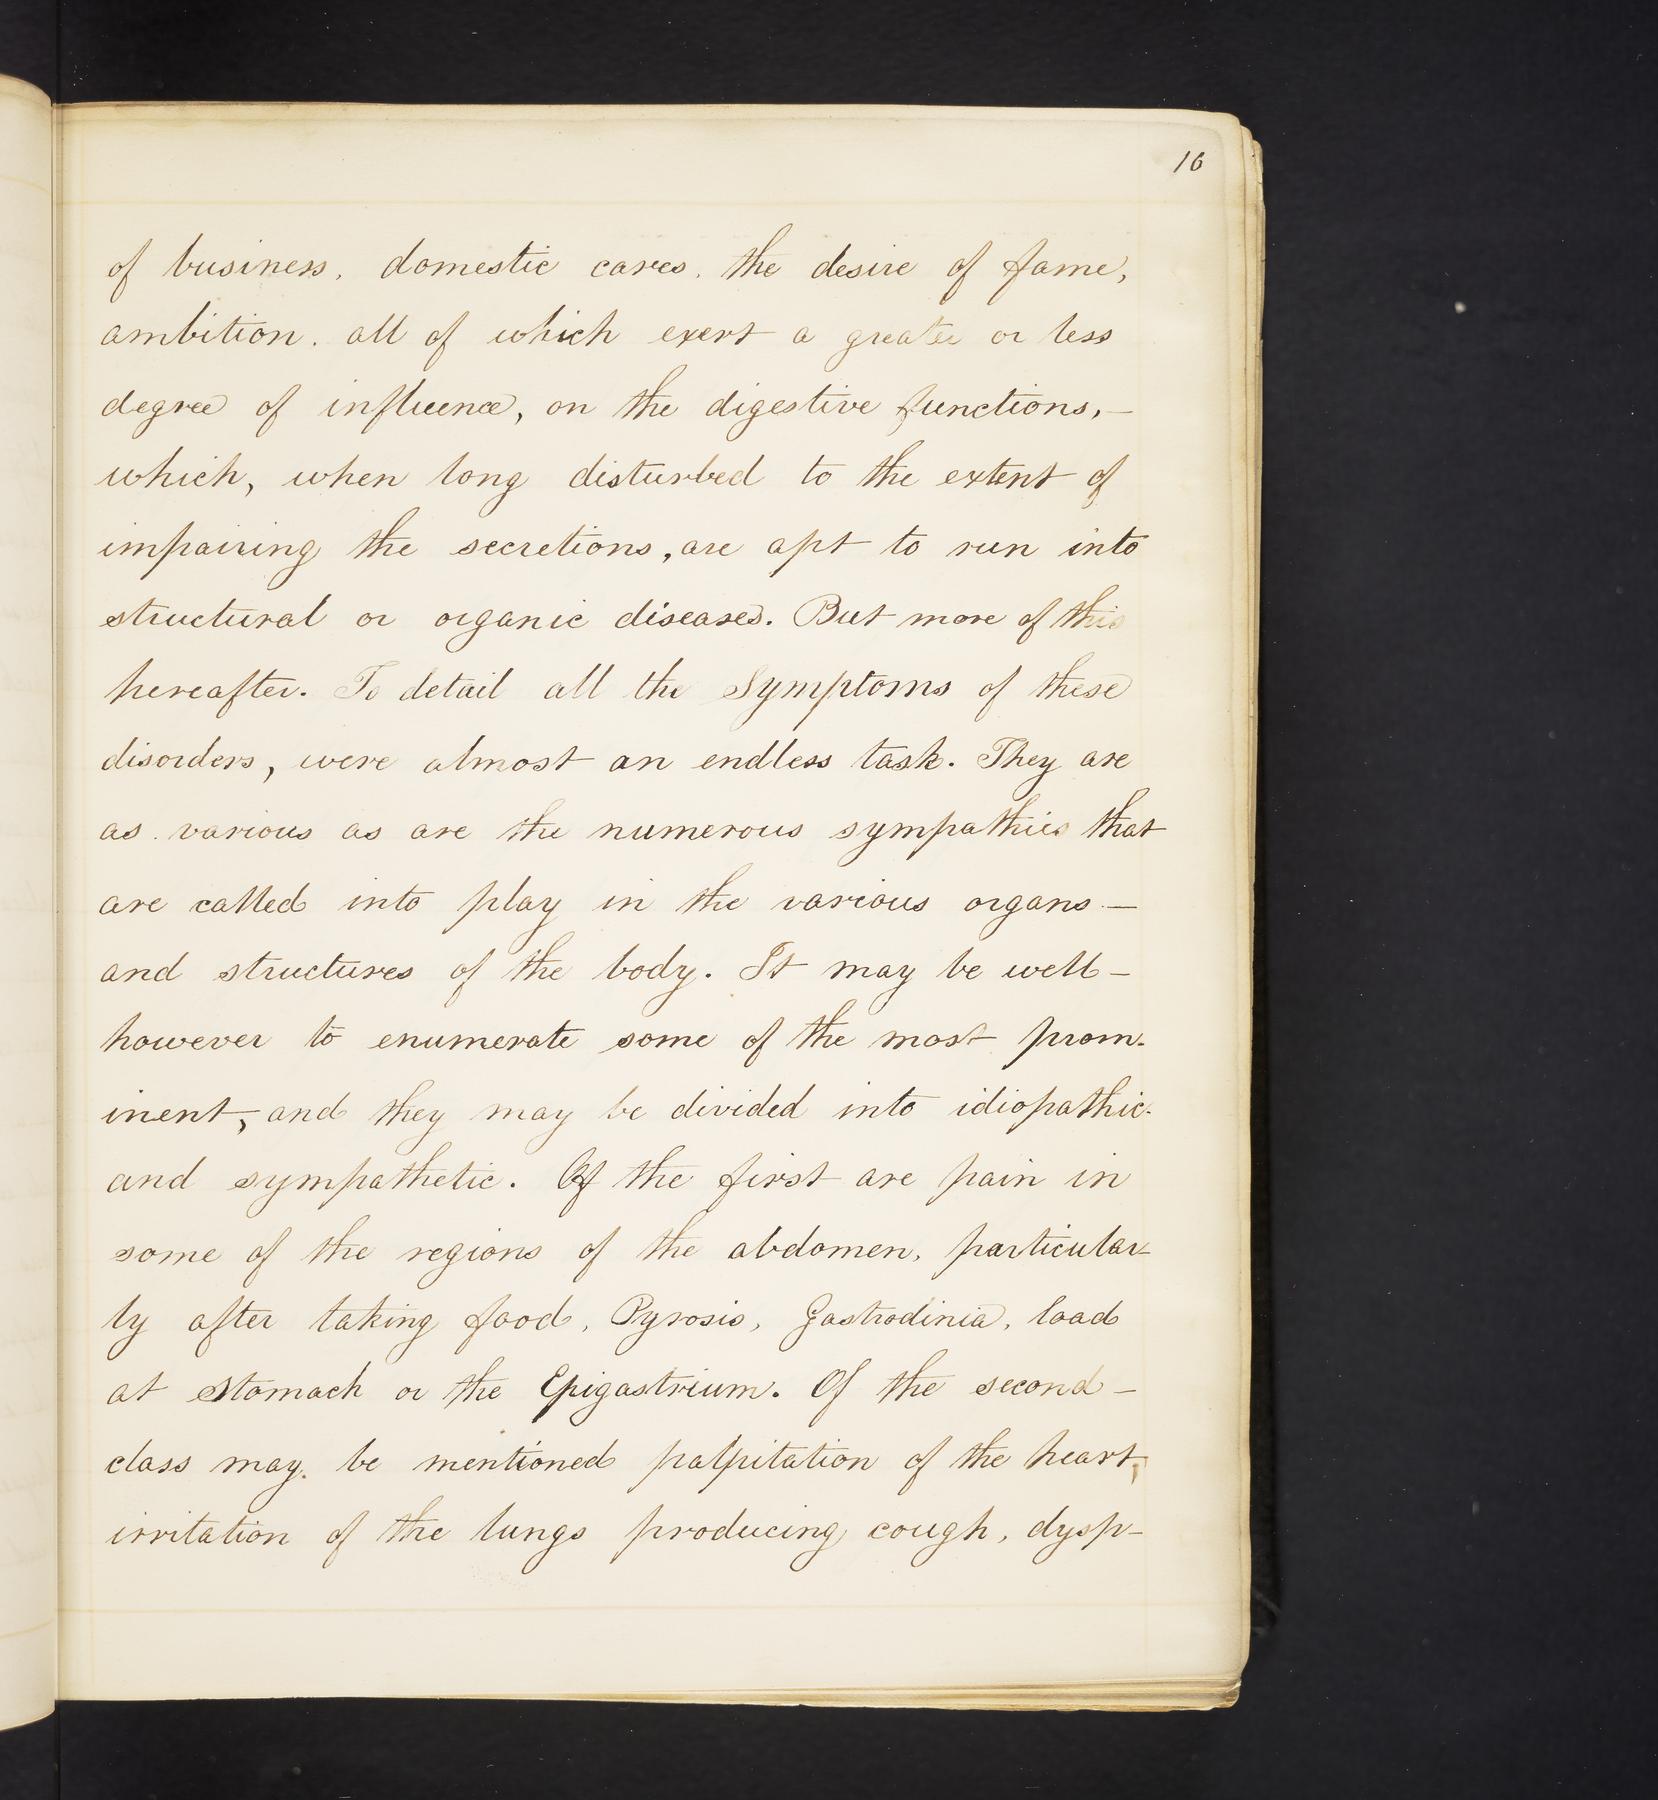 16
of business, domestic cares, the desire of fame,
ambition, all of which exert a greater or less
degree of influence, on the digestive functions,—
which, when long disturbed to the extent of
impairing the secretions, are apt to run into
structural or organic diseases. But more of this
hereafter. To detail all the symptoms of these
disorders, were almost an endless task. They are
as various as are the numerous sympathies that
are called into play in the various organs —
and structures of the body. It may be well —
however to enumerate some of the most prom-
inent, and they may be divided into idiopathic-
and sympathetic. Of the first are pain in
some of the regions of the abdomen, particular-
ly after taking food, Pyrosis, Gastrodinia, load
at stomach or the Epigastrium. Of the second —
class may be mentioned palpitation of the heart,
irritation of the lungs producing cough, dysp-